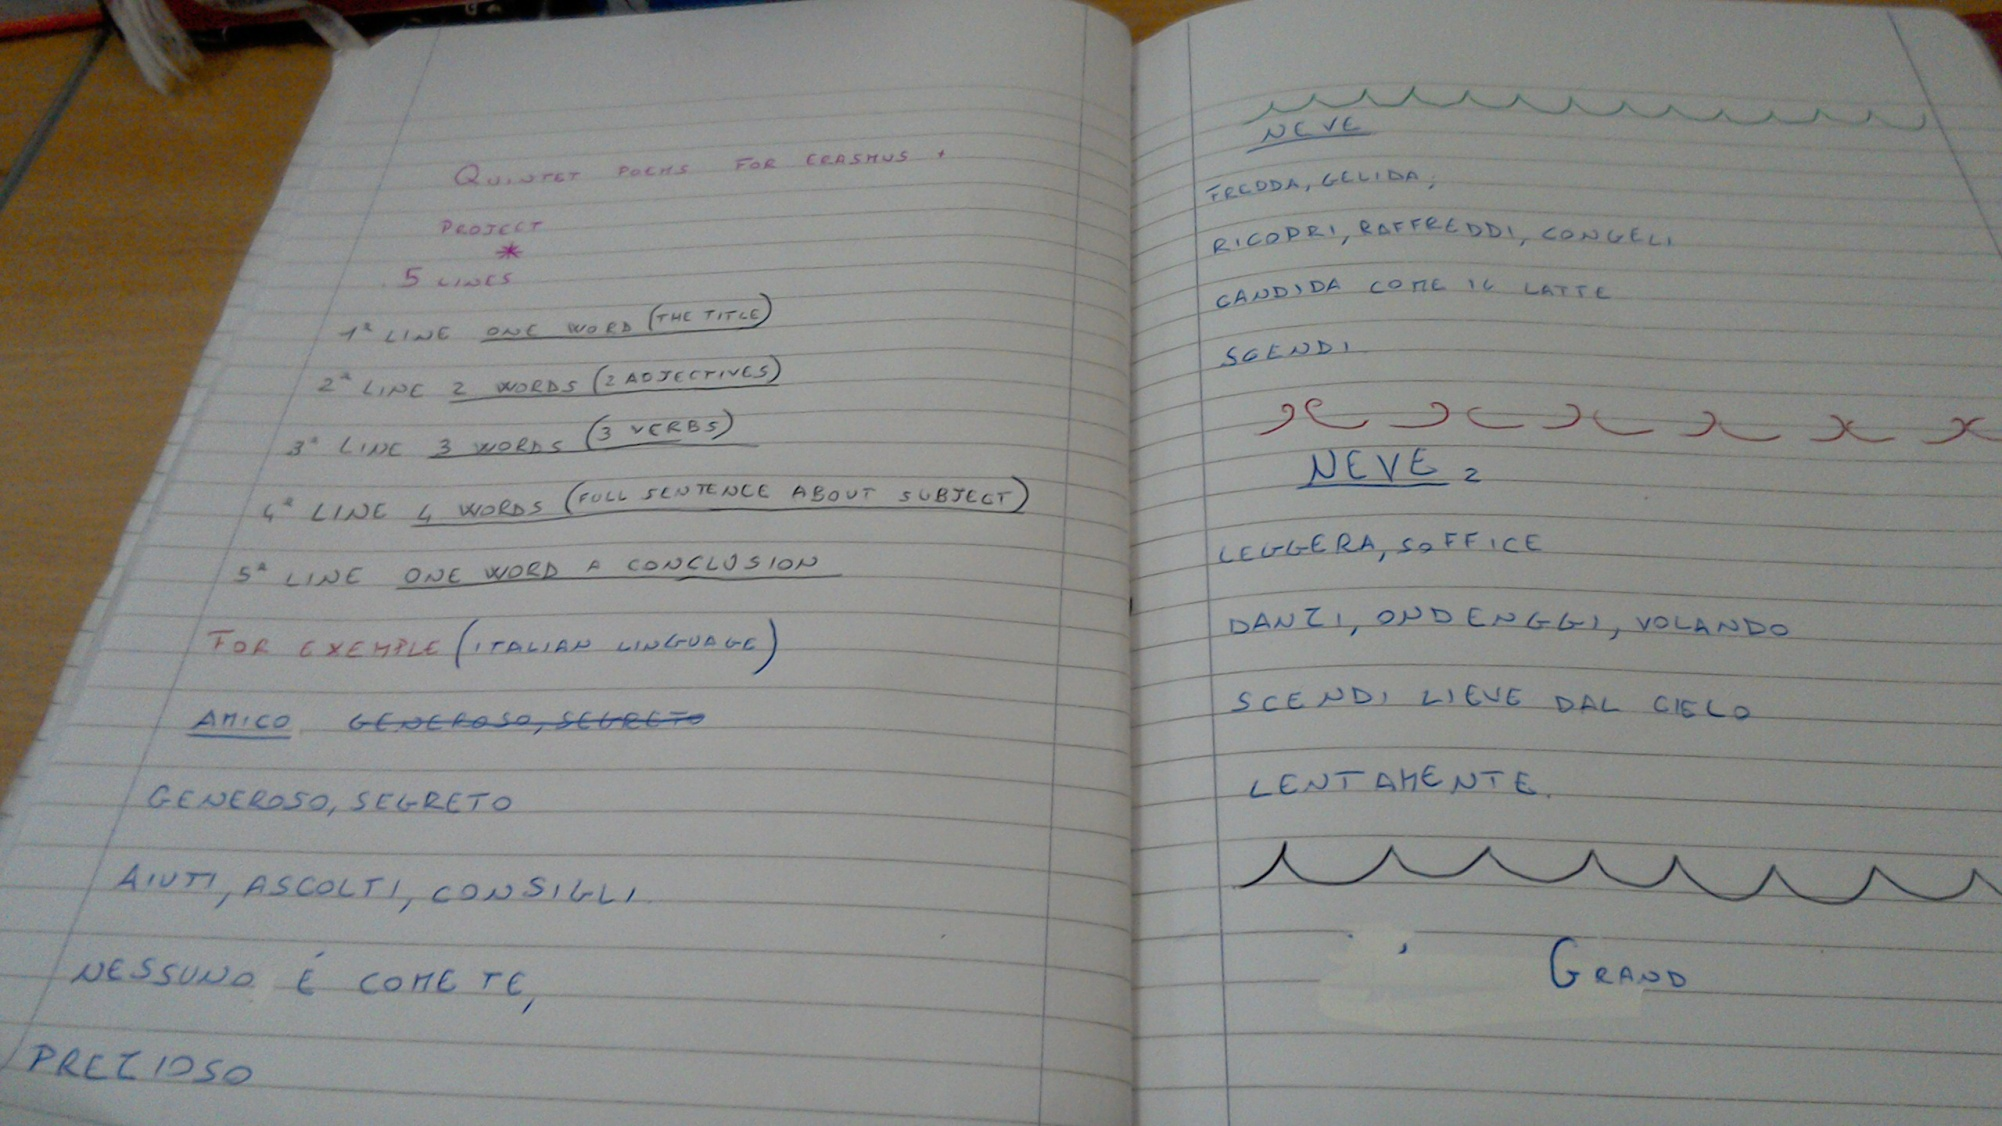 QUINTET POEMS FOR ERASMUS +
PROJECT
*
5 LINES
1ª LINE ONE WORD (THE TITLE)
2ª LINE 2 WORDS (2 ADJECTIVES)
3ª LINE 3 WORDS (3 VERBS)
4ª LINE 4 WORDS (FULL SENTENCE ABOUT SUBJECT)
5ª LINE ONE WORD A CONCLUSION
FOR EXEMPLE (ITALIAN LINGUAGE)
AMICO GENEROSO, SEGRETO
GENEROSO, SEGRETO
AIUTI, ASCOLTI, CONSIGLI
NESSUNO É COME TE,
PREZIOSO
NEVE
FREDDA, GELIDA,
RICOPRI, RAFFREDDI, CONGELI
CANDIDA COME IL LATTE
SCENDI
NEVE 2
LEGGERA, SOFFICE
DANZI, ONDENGGI, VOLANDO
SCENDI LIEVE DAL CIELO
LENTAMENTE.
GRAND